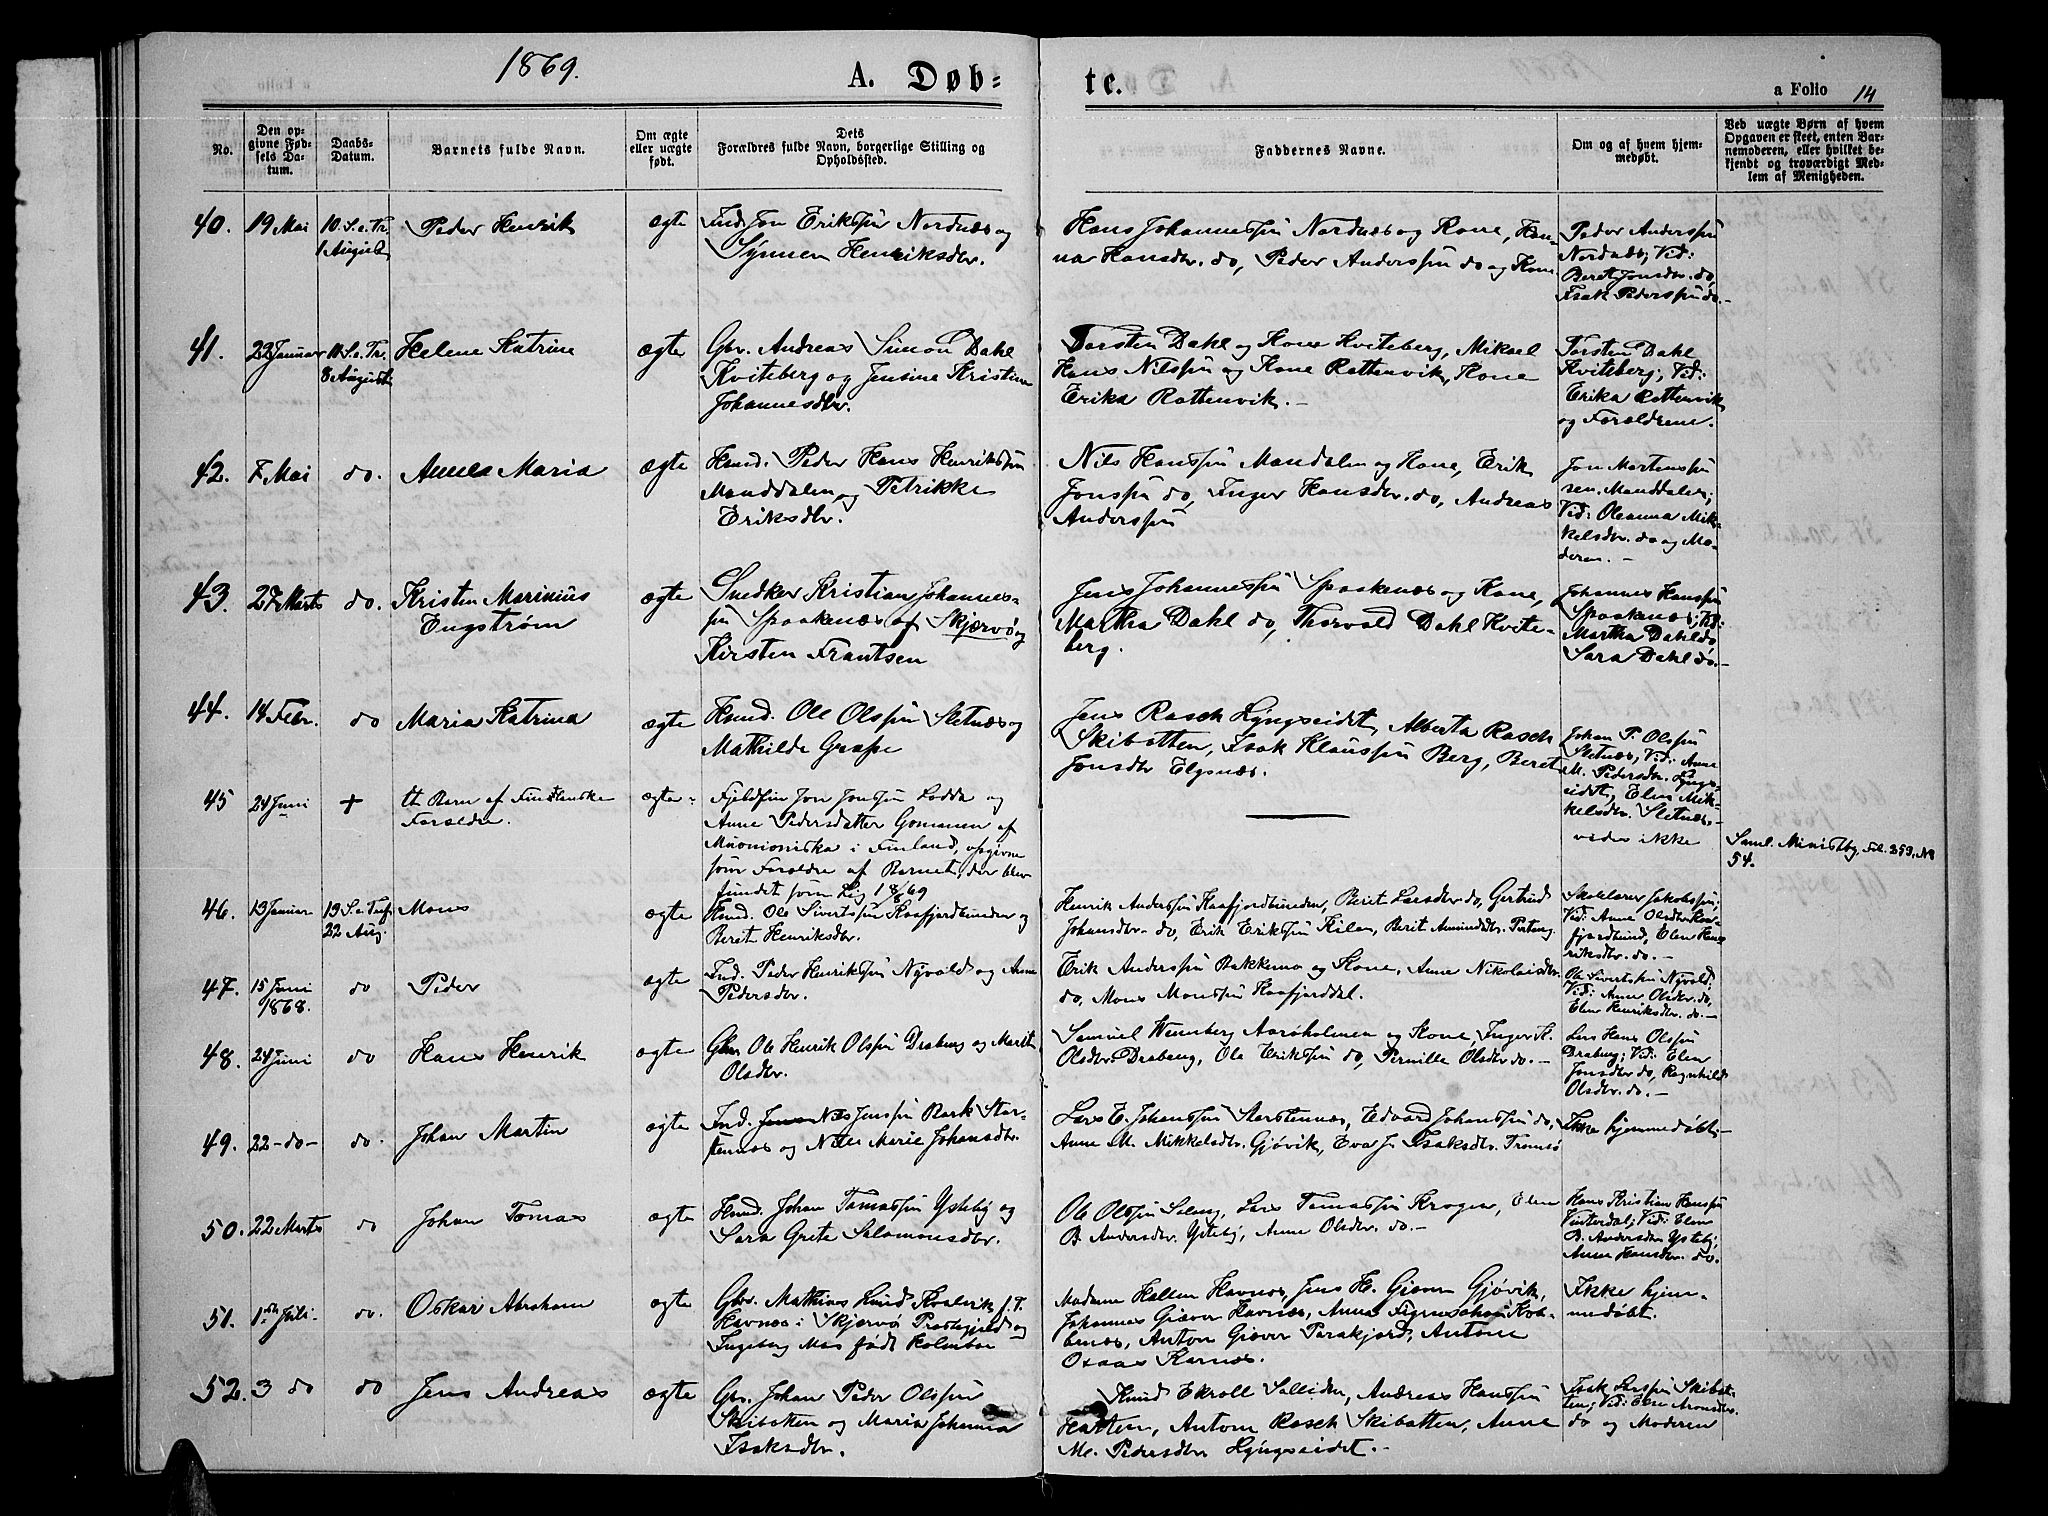 1869.
A. Døb-
te.
a Folio 14
No.
Den op-
givne Fød-
sels Da-
tum.
Daabs-
Datum.
Barnets fulde Navn.
Om ægte
eller uægte
født.
Dets
Forældres fulde Navn, borgerlige Stilling og
Opholdssted.
Faddernes Navne.
Om og af hvem hjem-
medøbt.
Ved uægte Børn af hvem
Opgaven er skeet, enten Bar-
nemoderen, eller hvilket be-
kjendt og troværdigt Med-
lem af Menigheden.
40. 19 Mai
10. S. e. Tr.
1 August
Peder Henrik
ægte
Ind. Jon Erikssøn Nordnæs og
Synnen Henriksdtr.
Hans Johannessøn Nordnæs og Kone, Han-
na Hansdtr. do, Peder Anderssøn do og Kone
Peder Anderssøn
Nordnæs; Vid:
Beret Jonsdtr. do,
Isak Pederssøn do.-
41. 22 Januar
11. S. e. Tr.
8 August
Helene Katrine
ægte
Gbr. Andreas Simon Dahl
Kviteberg og Jensine Kristine
Johannesdtr.
Torsten Dahl og Kone Kviteberg, Mikael
Hans Nilssøn og Kone Rottenvik, Kone
Erika Rottenvik. -
Torsten Dahl
Kviteberg; Vid:
Erika Rottenvik
og Forældrene.
42. 7 Mai
do.
Annea Maria
ægte
Hmd. Peder Hans Henrikssøn
Manddalen og Petrikke
Eriksdtr.
Nils Hanssøn Mandalen og Kone, Erik
Jonssøn do, Inger Hansdtr. do, Andreas
Anderssøn
Jon Martenssøn
sen. Manddalen;
Vid: Oleanna Mik-
kelsdtr. do og Mo-
deren. -
43. 27 Marts
do.
Kristen Marinius
Engstrøm
ægte
Snedker Kristian Johannes-
søn Spaakenæs af Skjervø og
Kirsten Frantsen
Jens Johannessøn Spaakenæs og Kone,
Martha Dahl do, Thorvald Dahl Kvite-
berg.
Johannes Hanssøn
Spaakenæs; Vid:
Martha Dahl do,
Sara Dahl do.-
44. 14 Febr.
do
Maria Katrina
ægte
Hmd. Ole Olssøn Sletnæs og
Mathilde Grape
Jens Rasch Lyngseidet, Alberta Rasch
Skibotten, Isak Klaussøn Berg, Beret
Jonsdtr Elgsnæs.
Johan P. Olssøn
Sletnæs, Vid: Anne
M. Pedersdtr. Lyngs-
eidet, Elen Mik-
kelsdtr. Sletnæs.-
45 24 Juni
+
et Barn af Finlanske
Forældre.
ægte-
Fjeldfin Jon Jonssøn Lodda og
Anne Pedersdatter Gomanen af
Muonioniska i Finland, opgivne
som Forældre af Barnet, der blev
fundet som Lig 1 8/69
vides ikke
Saml. Ministbg. Fol. 353, No
54.
46. 13 Januar
13 S. e. Tref.
22 Aug.
Mons
ægte
Hmd. Ole Sivertssøn Kaafjordbunden og
Beret Henriksdtr.
Henrik Anderssøn Kaafjordbunden, Berit Larsdtr do, Gertrud
Johansdtr. do, Erik Erikssøn Kilen, Berit Amundsdtr. Pirtang
Skolelærer Jakobssøn;
Vid: Anne Olsdtr Kaa-
fjordbund, Elen Hen-
riksdtr. do. -
47. 15 Juni
1868.
do
Peder
ægte
Ind. Peder Henrikssøn Nyvold og Anne
Pedersdtr.
Erik Anderssøn Bakkemo og Kone, Anne Nikolaisdtr.
do, Mons Monssøn Kaafjorddal.
Ole Sivertssøn Nyvold;
Vid: Anne Olsdtr. do,
Elen Henriksdtr. do. -
48. 24 Juni
do
Hans Henrik
ægte
Gbr. Ole Henrik Olssøn Draberg og Marit
Olsdtr.
Samuel Wennberg Aarøholmen og Kone, Inger K.
Olsdtr. Draberg, Ole Erikssøn do, Pernille Olsdtr do. -
Lars Hans Olssøn
Draberg; Vid: Elen
Jonsdtr do, Ragnhild
Olsdtr. do.
49. 22 - do -
do.
Johan Martin
ægte
Ind. Nils Jenssøn Bark Stor-
stennæs og Nelle Marie Johansdtr.
Lars E. Johanssøn Storstennæs, Edvard Johanssøn do,
Anne M. Mikkelsdtr. Gjøvik, Eva J. Isaksdtr. Tromsø
Ikke hjemmedøbt.-
50. 22 Marts
do
Johan Tomas
ægte
Hmd. Johan Tomassøn Ysteby og
Sara Grete Salomonsdtr.
Ole Olssøn Seleng, Lars Tomassøn Krogen, Elen
B. Andersdtr. Ysteby, Anne Olsdtr. do. -
Hans Kristian Hanssøn
Vinterdal; Vid: Elen
B. Andersdtr Ysteby,
Anne Hansdtr. do.
51. 1ste Juli
do.
Oskar Abraham
ægte
Gbr. Mathias Lund Kvalvik f. T.
Havnæs i Skjervø Præstegjeld og
Ingeborg Mas født Holmboe
Madame Hallen Havnæs, Jens H. Giæver Gjøvik,
Johannes Giæver Havnæs, Anna Figenschou Kob-
benæs, Anton Giæver Parakjord, Antone
Oxaas Karnæs.
Ikke hjem-
medøbt.
52. 3 do
do
Jens Andreas
ægte
Gbr. Johan Peder Olssøn
Skibotten og Maria Johanna
Isaksdtr.
Knud Ekroll Solliden, Andreas Hanssøn
Hatten, Antone Rasch Skibotten, Anne
M. Pedersdtr Lyngseidet. -
Isak Larssøn Skibot-
ten; Vid: Else Aronsdtr.
do og Moderen